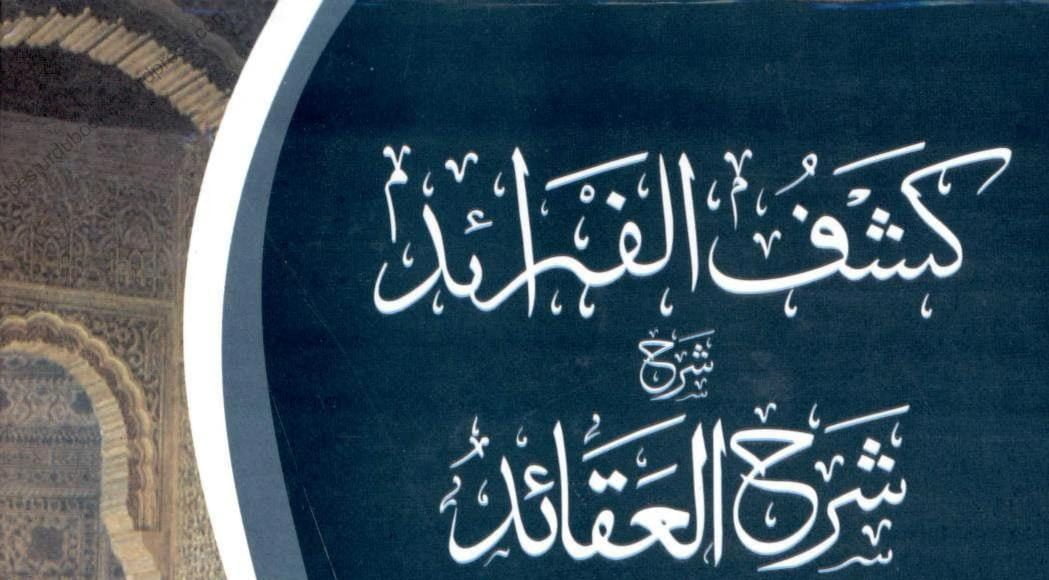 كشفُ الفرائد
شرح
شرح العقائد